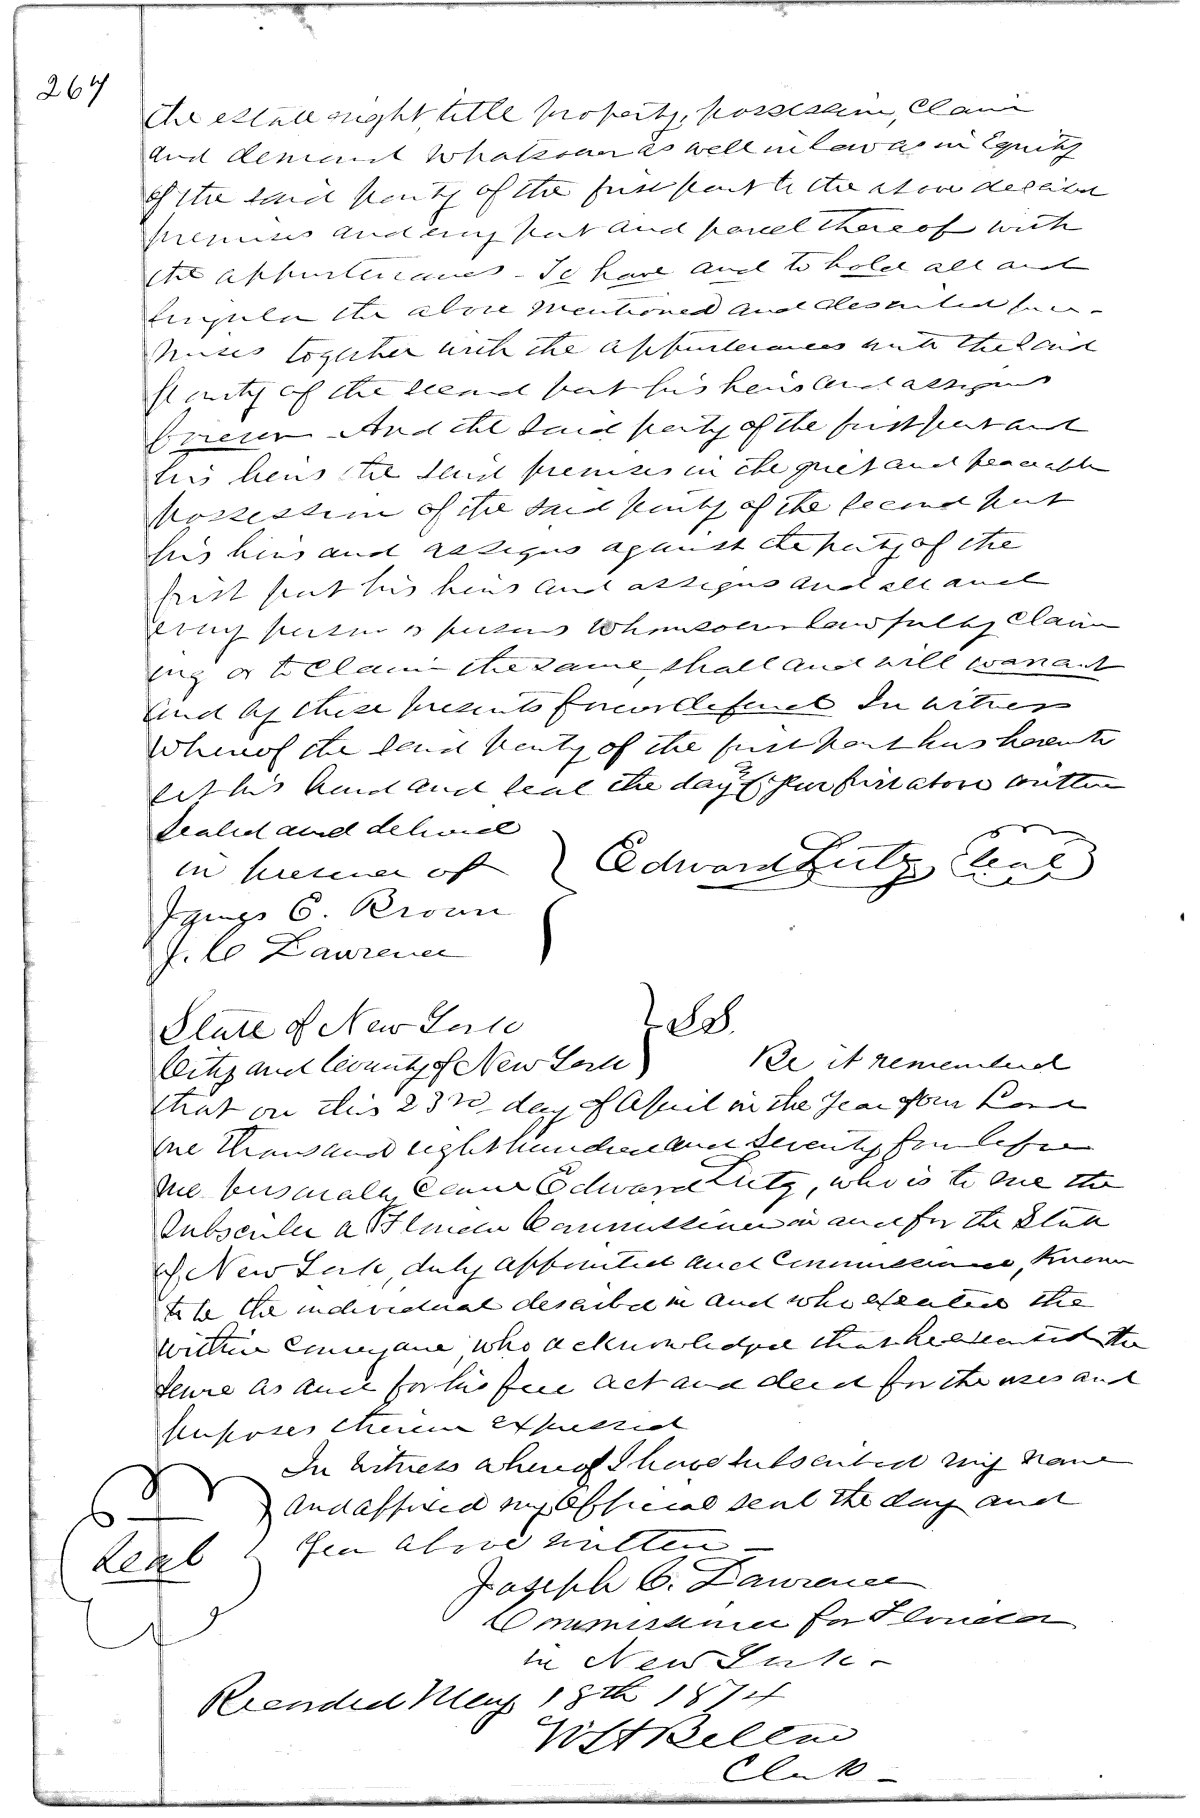 267
the estate right, title property, possession, Claim
and demand whatsoever as well in law as in Equity
of the said party of the first part to the above described
premises and every part and parcel thereof with
the appurtenances - To have and to hold all and
singular the above mentioned and described pre-
mises together with the appurtenances unto the said
party of the second part his heirs and assigns
forever - And the said party of the first part and
his heirs the said premises in the quiet and peaceable
possession of the said party of the second part
his heirs and assigns against the party of the
first part his heirs and assigns and all and
every person or persons whomsoever lawfully Claim
ing or to Claim the same, shall and will warrant
and by these presents forever defend In witness
Whereof the said party of the first part has hereunto
set his hand and seal the day & year first above written
Sealed and delivered
in presence of } Edward Lutz (Seal)
James C. Brown
J. C Lawrence
State of New York } SS.
City and County of New York } Be it remembered
that on this 23rd day of April in the Year of our Lord
one thousand eight hundred and seventy four before
me personally came Edward Lutz, who is to me the
Subscriber a Florida Commissioner in and for the State
of New York, duly appointed and Commissioned, known
to be the individual described in and who executed the
within Conveyance, who acknowledged that he executed the
same as and for his free act and deed for the uses and
purposes therein expressed
In witness whereof I have subscribed my name
and affixed my Official seal the day and
Seal } Year above written -
Joseph C. Lawrence
Commissioner for Florida
in New York -
Recorded May 18th 1874
Clerk -